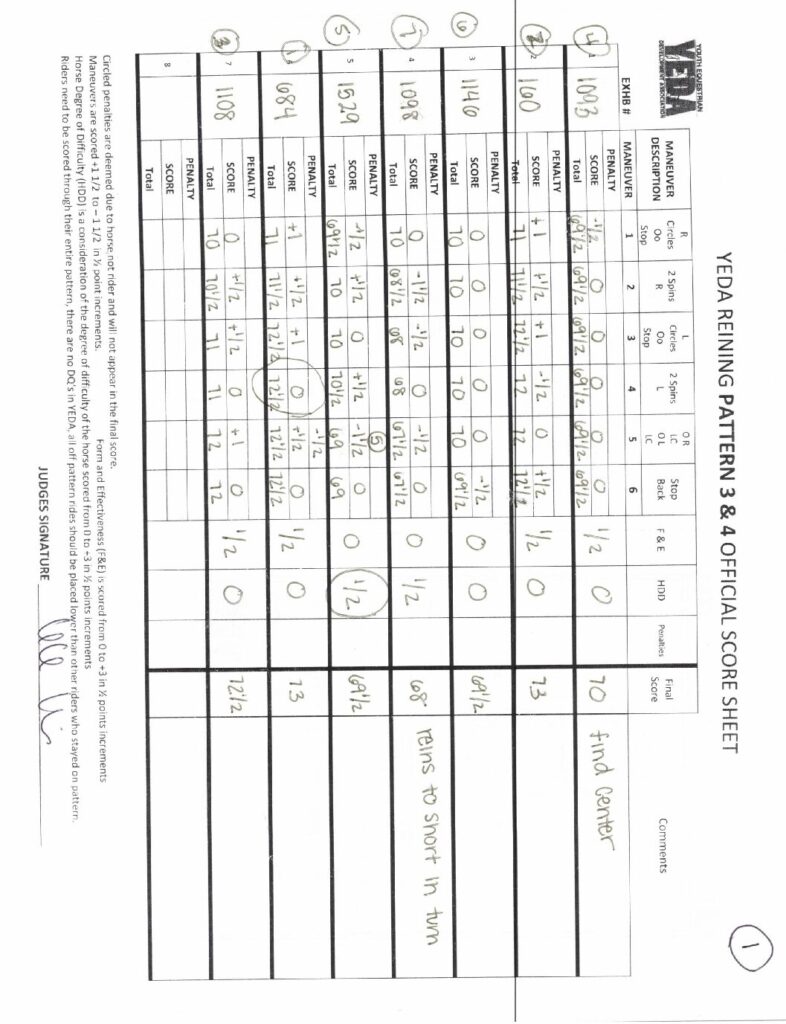 YEDA REINING PATTERN 3 & 4 OFFICIAL SCORE SHEET
1
YOUTH EQUESTRIAN
YEDA
DEVELOPMENT ASSOCIATION
MANEUVER DESCRIPTION R Circles Oo Stop 2 Spins R L Circles Oo Stop 2 Spins L OR IC OL IC Stop Back F & E HDD Penalties Final Score Comments
EXHB # MANEUVER 1 2 3 4 5 6
4 1 1093 PENALTY
SCORE -1/2 0 0 0 0 0 1/2 0 70 find center
Total 69 1/2 69 1/2 69 1/2 69 1/2 69 1/2 69 1/2
2 2 160 PENALTY
SCORE +1 +1/2 +1 -1/2 0 +1/2 1/2 0 73
Total 71 71 1/2 72 1/2 72 72 72 1/2
6 3 1146 PENALTY
SCORE 0 0 0 0 0 -1/2 0 0 69 1/2
Total 70 70 70 70 70 69 1/2
7 4 1098 PENALTY
SCORE 0 -1 1/2 -1/2 0 -1/2 0 0 1/2 68 reins to short in turn
Total 70 68 1/2 68 68 67 1/2 67 1/2
5 5 1529 PENALTY 5
SCORE -1/2 +1/2 0 +1/2 -1 1/2 0 0 1/2 69 1/2
Total 69 1/2 70 70 70 1/2 69 69
1 6 684 PENALTY -1/2
SCORE +1 +1/2 +1 0 +1/2 0 1/2 0 73
Total 71 71 1/2 72 1/2 72 1/2 72 1/2 72 1/2
3 7 1108 PENALTY
SCORE 0 +1/2 +1/2 0 +1 0 1/2 0 72 1/2
Total 70 70 1/2 71 71 72 72
8 PENALTY
SCORE
Total
Circled penalties are deemed due to horse not rider and will not appear in the final score.
Maneuvers are scored +1 1/2 to – 1 1/2 in ½ point increments. Form and Effectiveness (F&E) is scored from 0 to +3 in ½ points increments
Horse Degree of Difficulty (HDD) is a consideration of the degree of difficulty of the horse scored from 0 to +3 in ½ points increments
Riders need to be scored through their entire pattern, there are no DQ's in YEDA, all off pattern rides should be placed lower than other riders who stayed on pattern.
JUDGES SIGNATURE